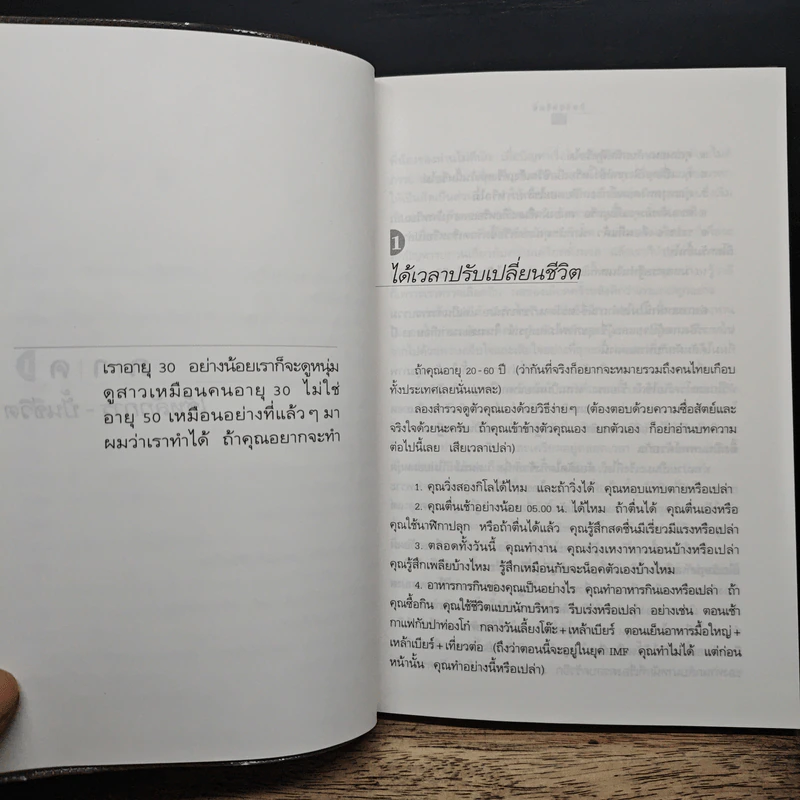 เราอายุ 30 อย่างน้อยเราก็จะดูหนุ่ม
ดูสาวเหมือนคนอายุ 30 ไม่ใช่
อายุ 50 เหมือนอย่างที่แล้วๆ มา
ผมว่าเราทำได้ ถ้าคุณอยากจะทำ
1
ได้เวลาปรับเปลี่ยนชีวิต
ถ้าคุณอายุ 20-60 ปี (ว่ากันที่จริงก็อยากจะหมายรวมถึงคนไทยเกือบ
ทั้งประเทศเลยนั่นแหละ)
ลองสำรวจดูตัวคุณเองด้วยวิธีง่ายๆ (ต้องตอบด้วยความซื่อสัตย์และ
จริงใจด้วยนะครับ ถ้าคุณเข้าข้างตัวคุณเอง ยกตัวเอง ก็อย่าอ่านบทความ
ต่อไปนี้เลย เสียเวลาเปล่า)
1. คุณวิ่งสองกิโลได้ไหม และถ้าวิ่งได้ คุณหอบแทบตายหรือเปล่า
2. คุณตื่นเช้าอย่างน้อย 05.00 น. ได้ไหม ถ้าตื่นได้ คุณตื่นเองหรือ
คุณใช้นาฬิกาปลุก หรือถ้าตื่นได้แล้ว คุณรู้สึกสดชื่นมีเรี่ยวมีแรงหรือเปล่า
3. ตลอดทั้งวันนี้ คุณทำงาน คุณง่วงเหงาหาวนอนบ้างหรือเปล่า
คุณรู้สึกเพลียบ้างไหม รู้สึกเหมือนกับจะน็อคตัวเองบ้างไหม
4. อาหารการกินของคุณเป็นอย่างไร คุณทำอาหารกินเองหรือเปล่า ถ้า
คุณซื้อกิน คุณใช้ชีวิตแบบนักบริหาร รีบเร่งหรือเปล่า อย่างเช่น ตอนเช้า
กาแฟกับปาท่องโก๋ กลางวันเลี้ยงโต๊ะ+เหล้าเบียร์ ตอนเย็นอาหารมื้อใหญ่+
เหล้าเบียร์+เที่ยวต่อ (ถึงว่าตอนนี้จะอยู่ในยุค IMF คุณทำไม่ได้ แต่ก่อน
หน้านั้น คุณทำอย่างนี้หรือเปล่า)